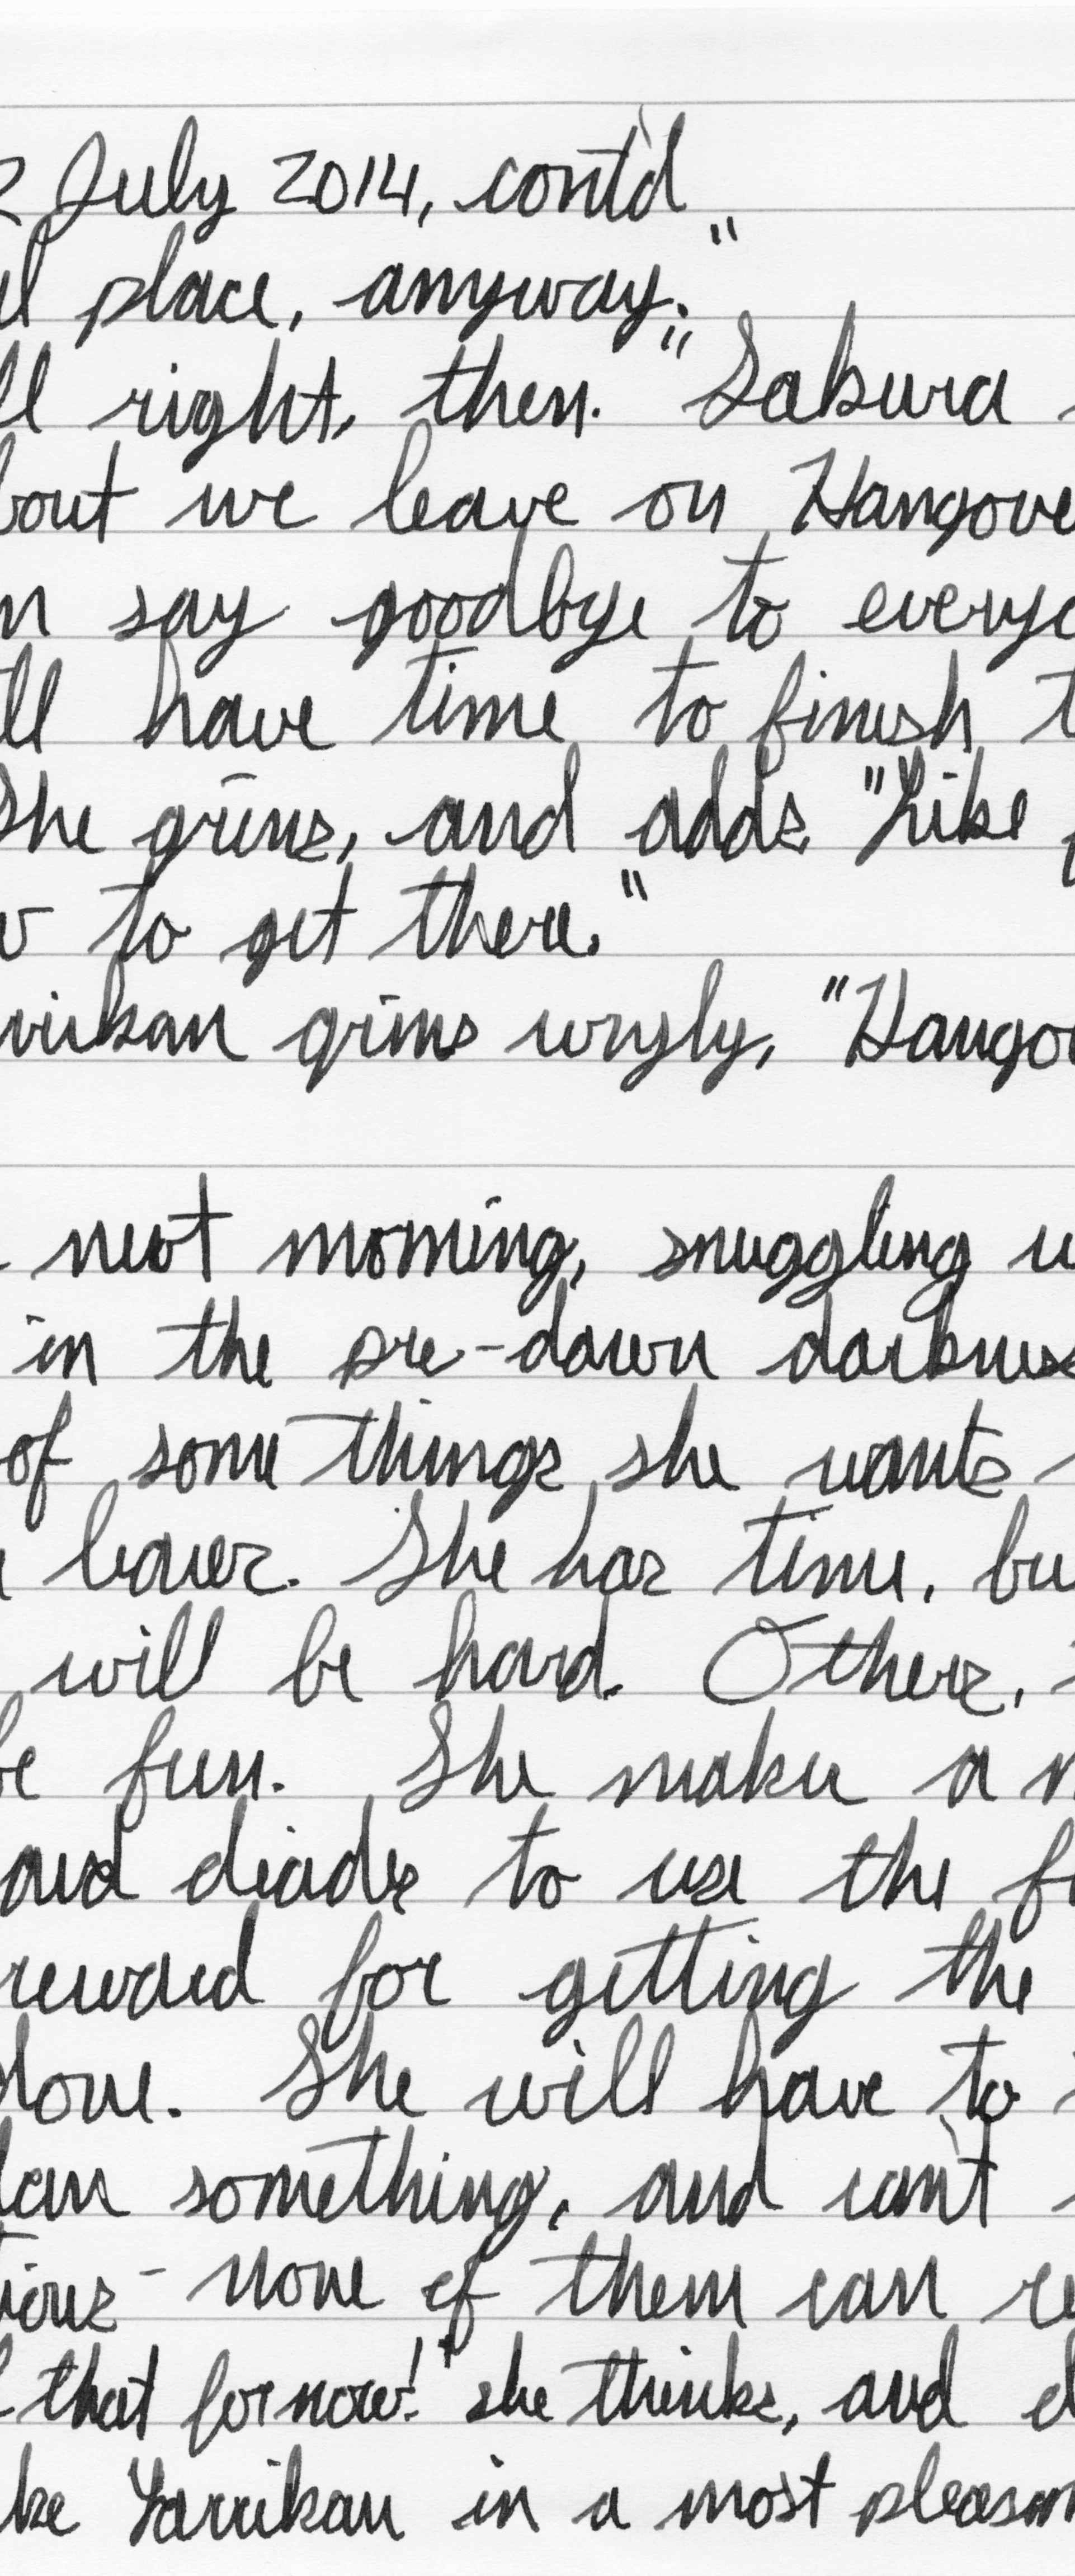 2 July 2014, cont'd
l place, anyway."
ll right, then." Sakura
bout we leave on Hangove
n say goodbye to everyo
ll have time to finish t
She grins, and adds, "Like
to get there."
rrikan grins wryly, "Hangov
next morning, snuggling u
in the pre-dawn darkness
of some things she wants
leaves. She has time, bu
will be hard. Others,
be fun. She makes a m
and decides to use the fu
reward for getting the
done. She will have to
lan something, and can't
tious - none of them can re
that for now!" she thinks, and d
ke Yarrikan in a most pleasan